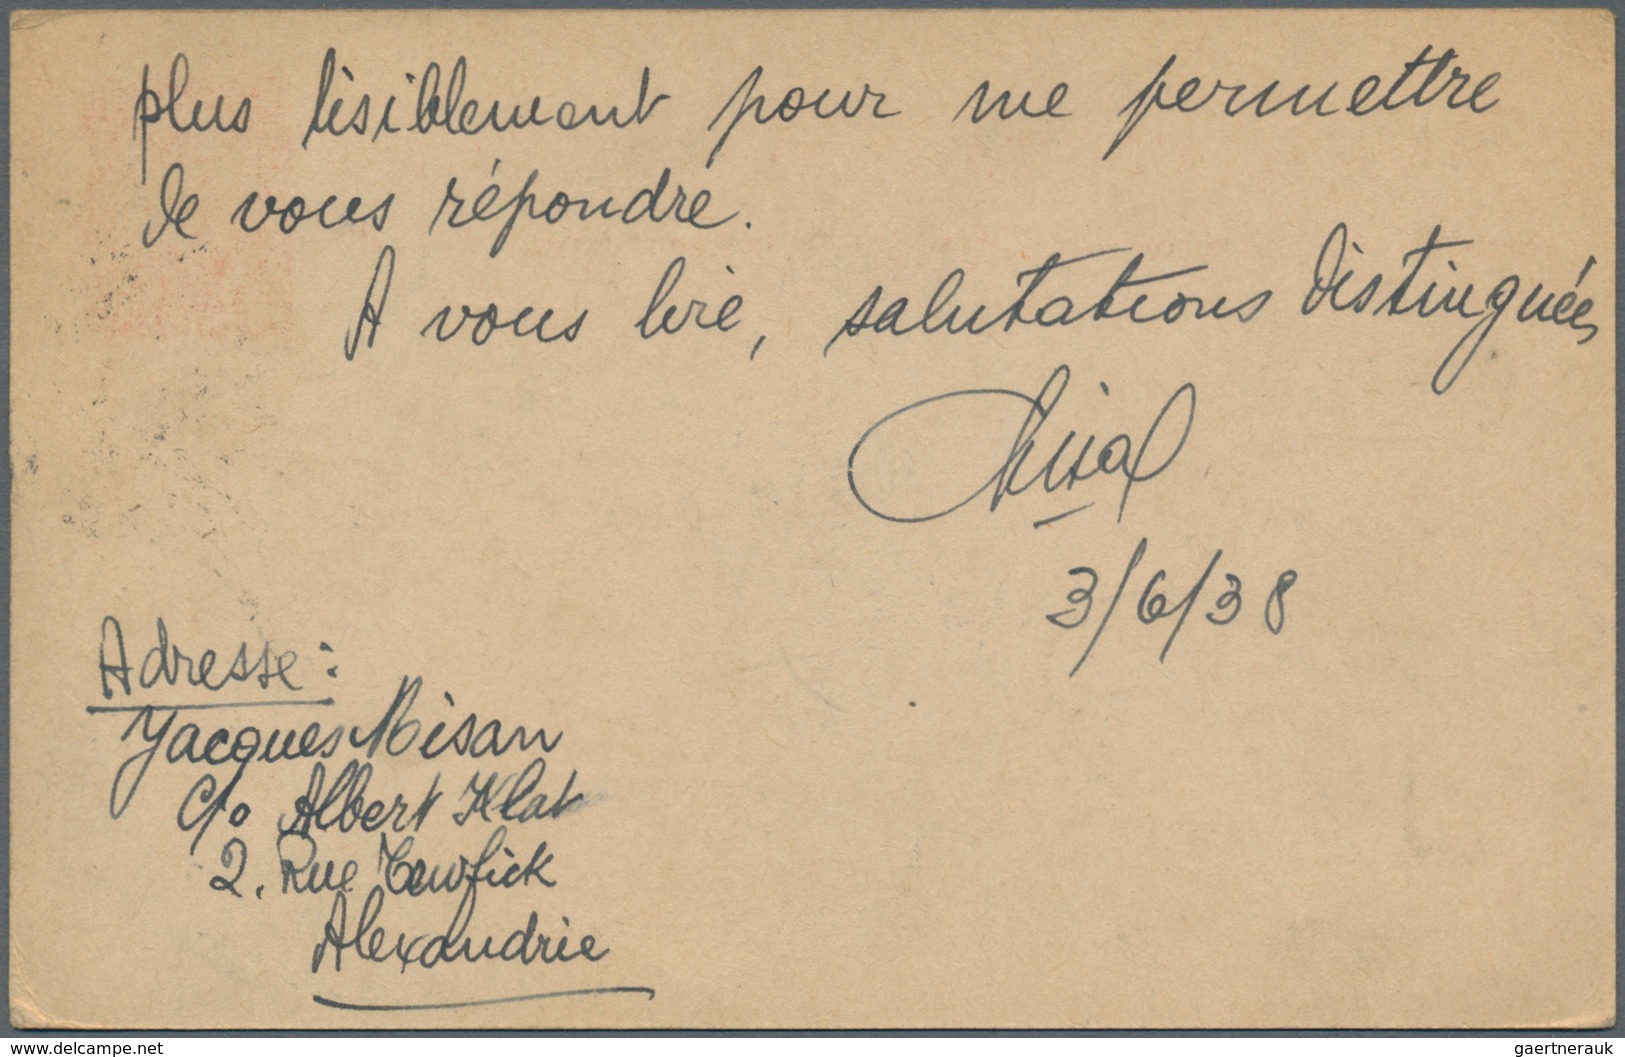 plus lisiblement pour me permettre
de vous répondre.
A vous lire, salutations distinguées
3/6/38
Adresse:
Jacques Misan
c/o Albert Klat
2, Rue Tewfick
Alexandrie
www.delcampe.net
gaertnerauk